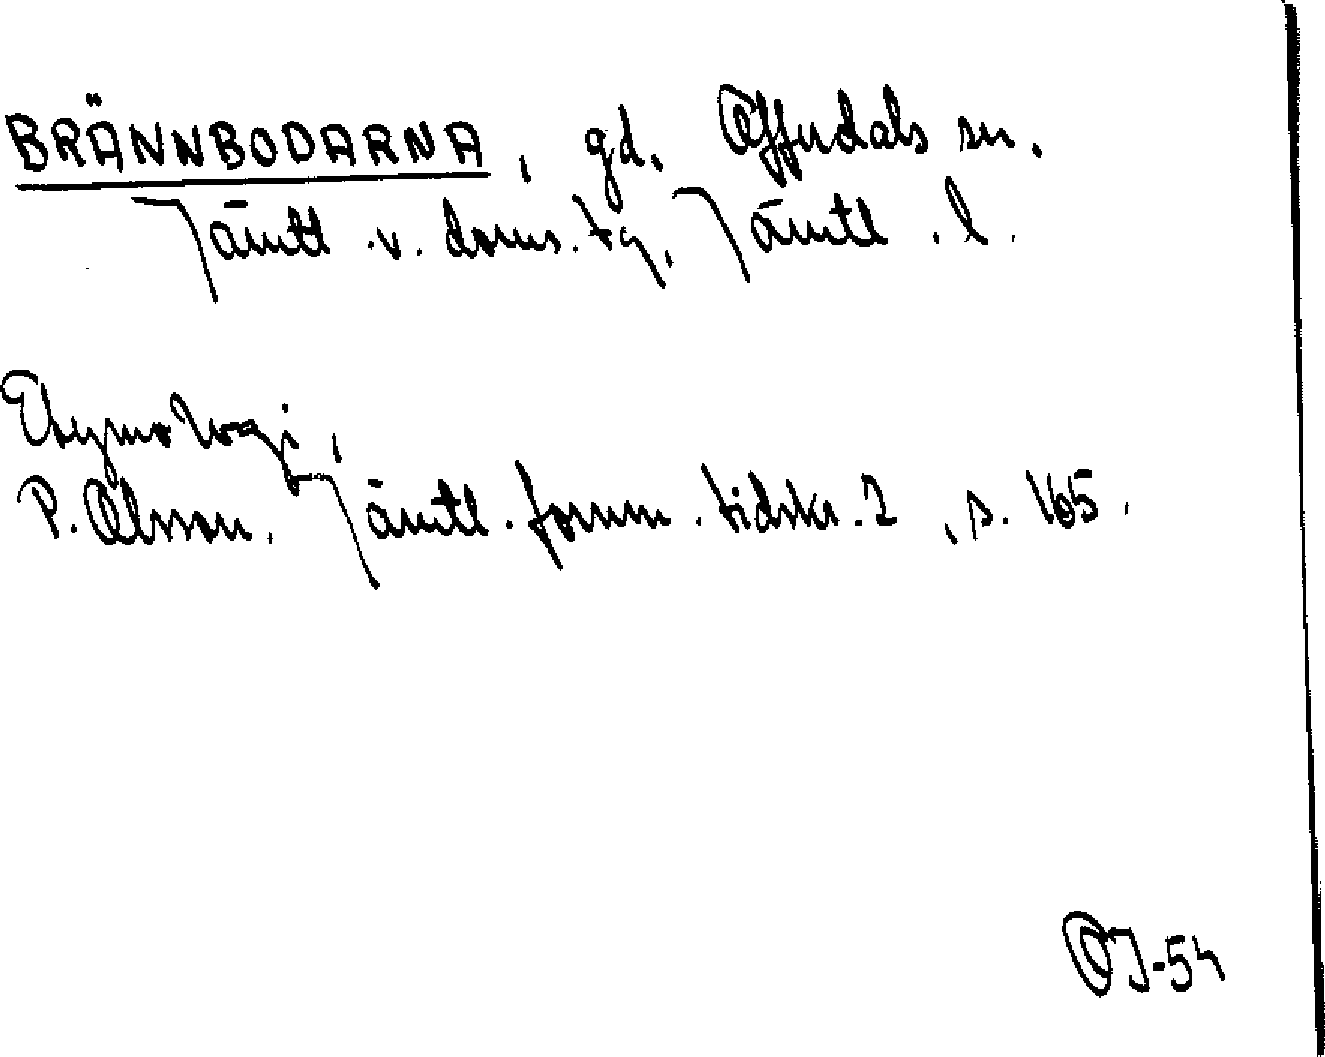 BRÄNNBODARNA, gd. Offerdals sn.
Jämtl. v. doms. tg, Jämtl. l.
Etymologi,
P. Olsson, Jämtl. fornm. tidskr. 2, s. 165.
OJ-54